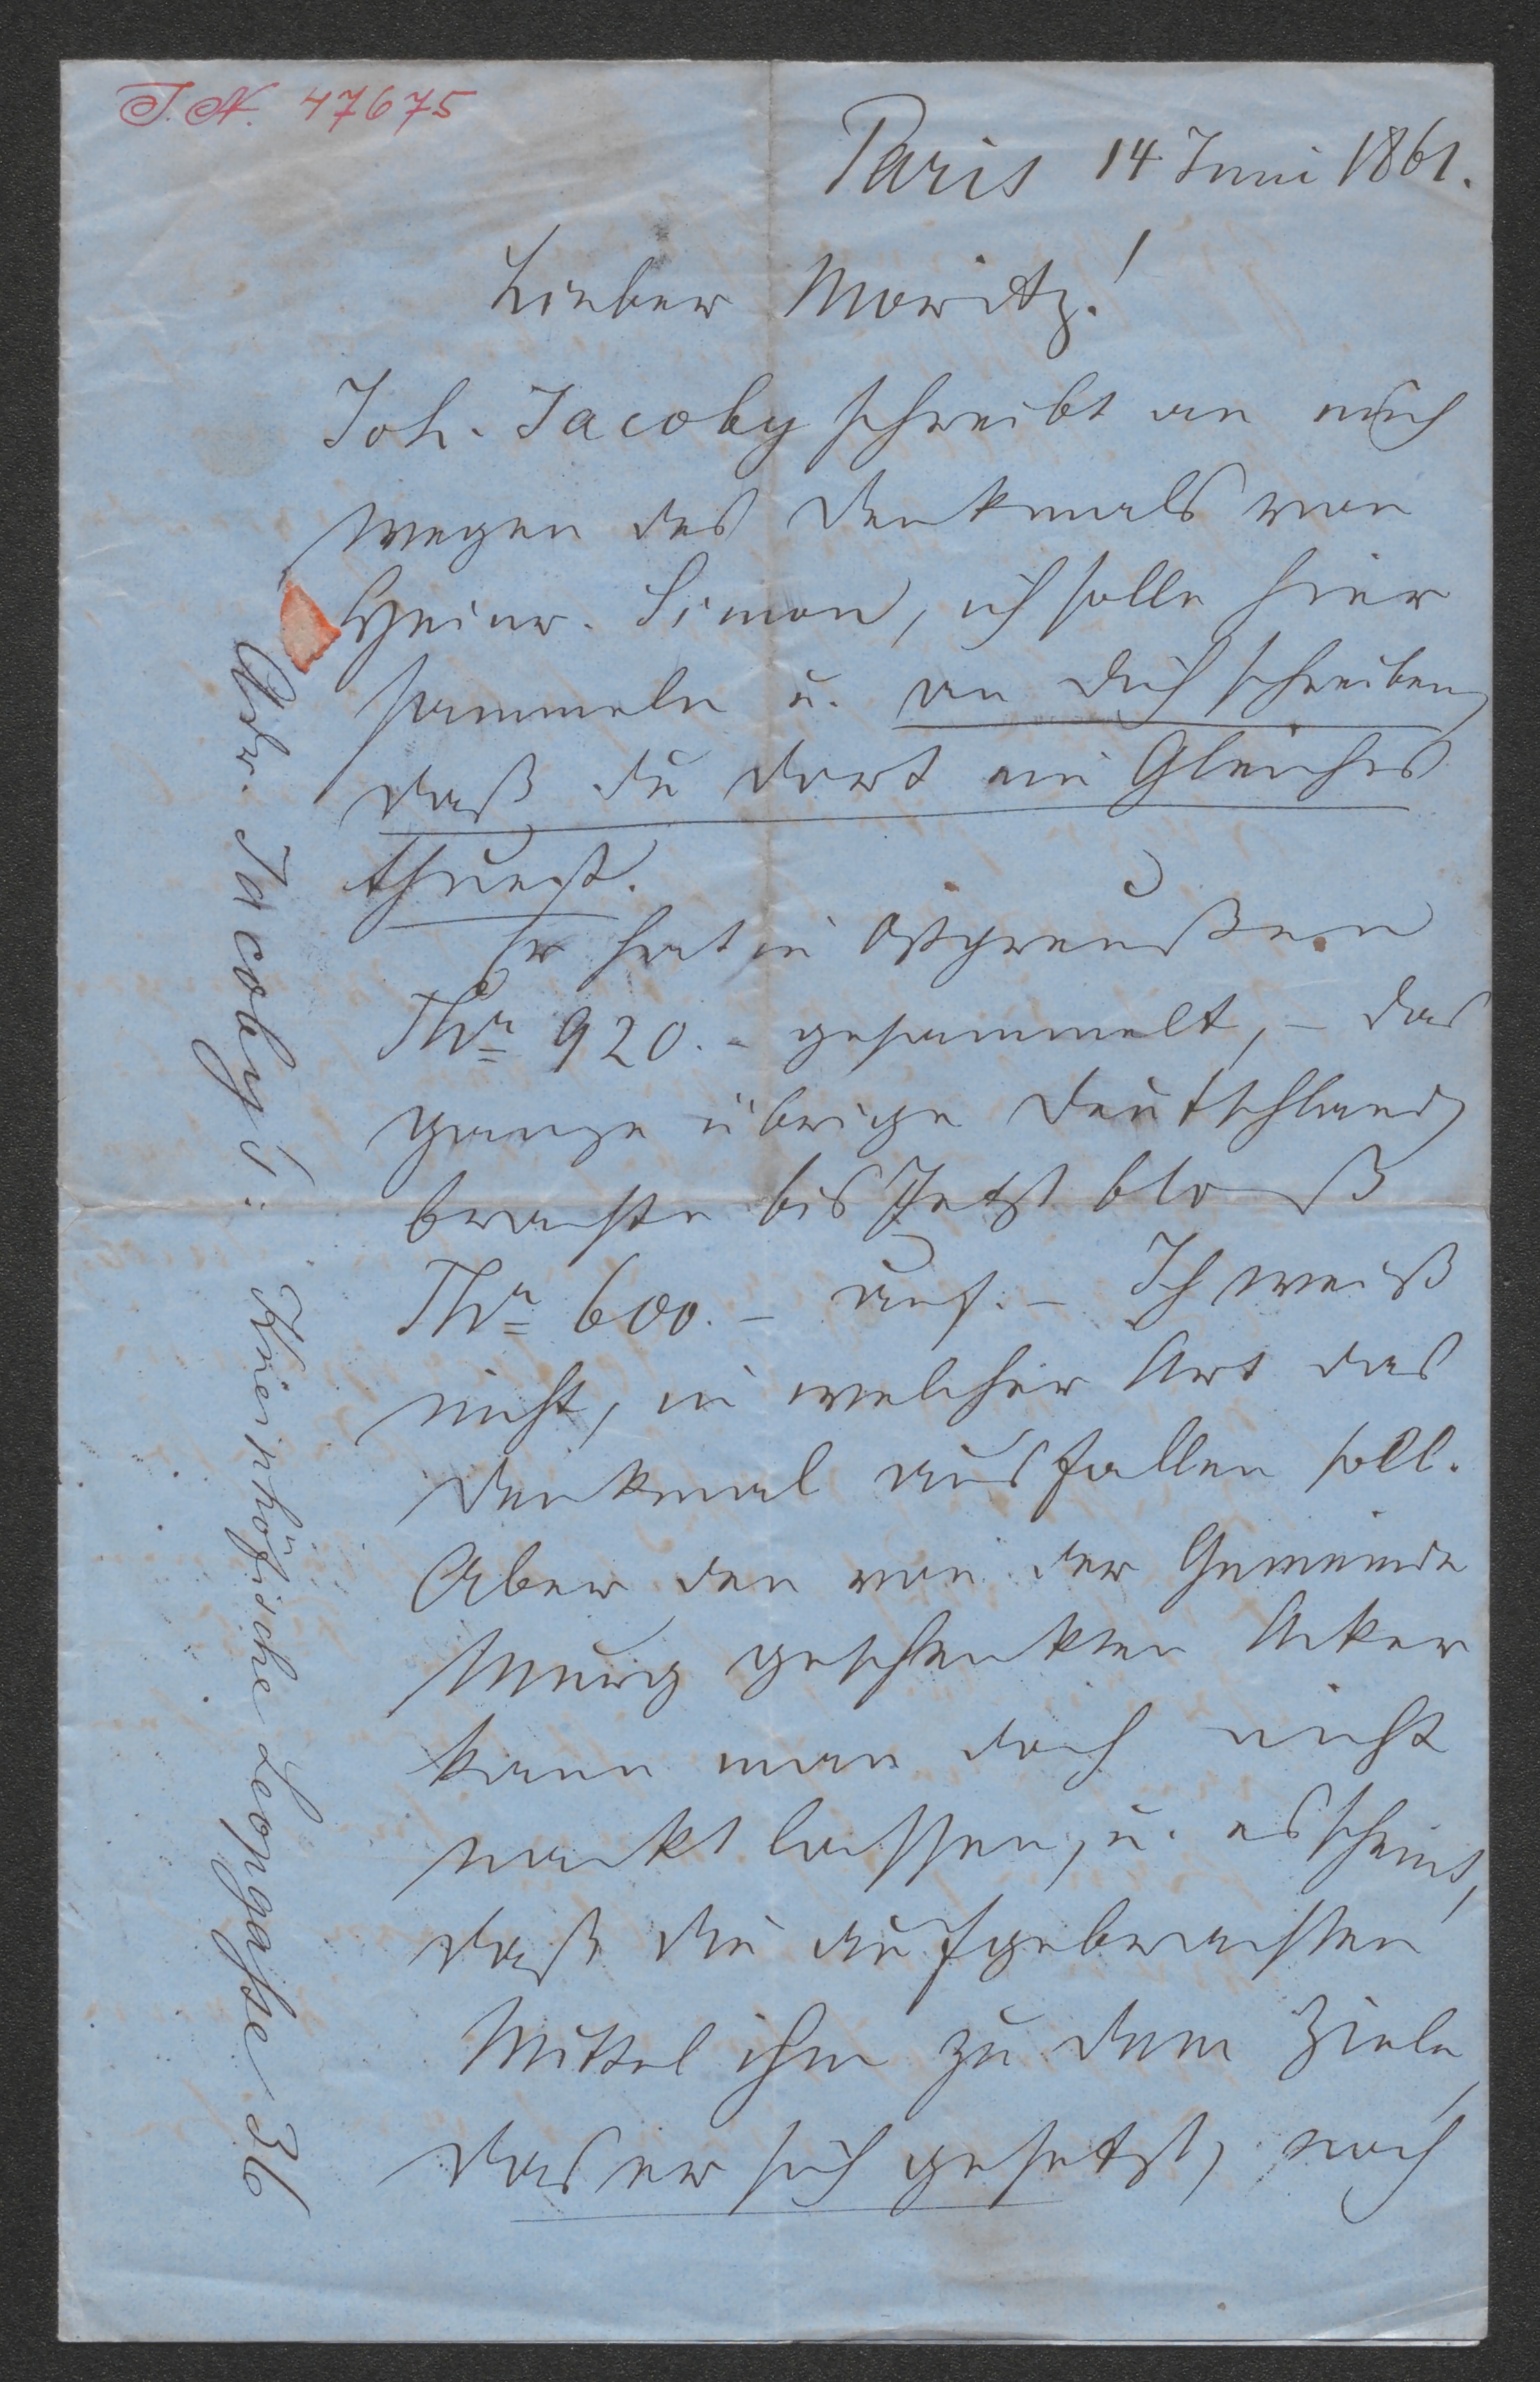 I. N. 47675
Paris 14 Juni 1861.
Lieber Moritz!
Joh. Jacoby schreibt an mich
wegen des Denkmals von
Heinr. Simon, ich solle hier
sammeln u. an Dich schreiben,
daß Du dort ein Gleiches
thuest.
Er hat in Ostpreußen
Thr 920.- gesammelt, - das
ganze übrige Deutschland
brachte bis Jetzt bloß
Thr 600.- auf. - Ich weiß
nicht, in welcher Art das
Denkmal ausfallen soll.
Aber den von der Gemeinde
Murg geschenkten Acker
kann man doch nicht
nackt lassen, u. es scheint,
daß die aufgebrachten
Mittel ihm zu dem Ziele,
das er sich gesetzt, noch
Adr. Jacoby's:
Kneiphöfische Langgasse 36